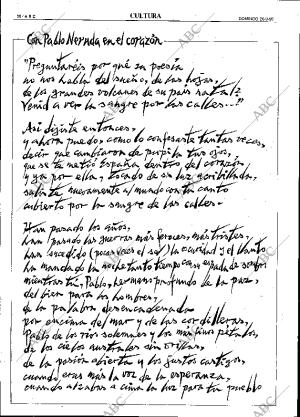 50/A B C
CULTURA
DOMINGO
Con Pablo Neruda en el corazón
"Preguntaréis por qué su poesía
no nos habla del sueño, de las hojas,
de los grandes volcanes de su país natal?
Venid a ver la sangre por las calles..."
Así dijiste entonces,
y ahora puedo, como lo confesaste tantas veces,
decir que cambiaron de pronto tus ojos,
que se te metió España dentro del corazón,
y que por ella, tocado de su luz acribillada,
saliste nuevamente al mundo con tu canto
cubierto por la sangre de las calles.
Han pasado los años,
han pasado las guerras más feroces, más tristes,
han sucedido (pocas veces el sol) la oscuridad y el llanto
ha mandado la noche tanto tiempo con su espada de sombra
mientras tú, Pablo, hermano profundo de la paz,
del bien para los hombres,
de la palabra desencadenada
por encima del mar y de las cordilleras,
Pablo de los ríos solemnes y los más finos pétalos,
de los cielos australes sin orillas,
de la pasión abierta y los justos castigos,
cuando eras más la voz de la esperanza,
cuando alzabas a cima la luz para tu pueblo